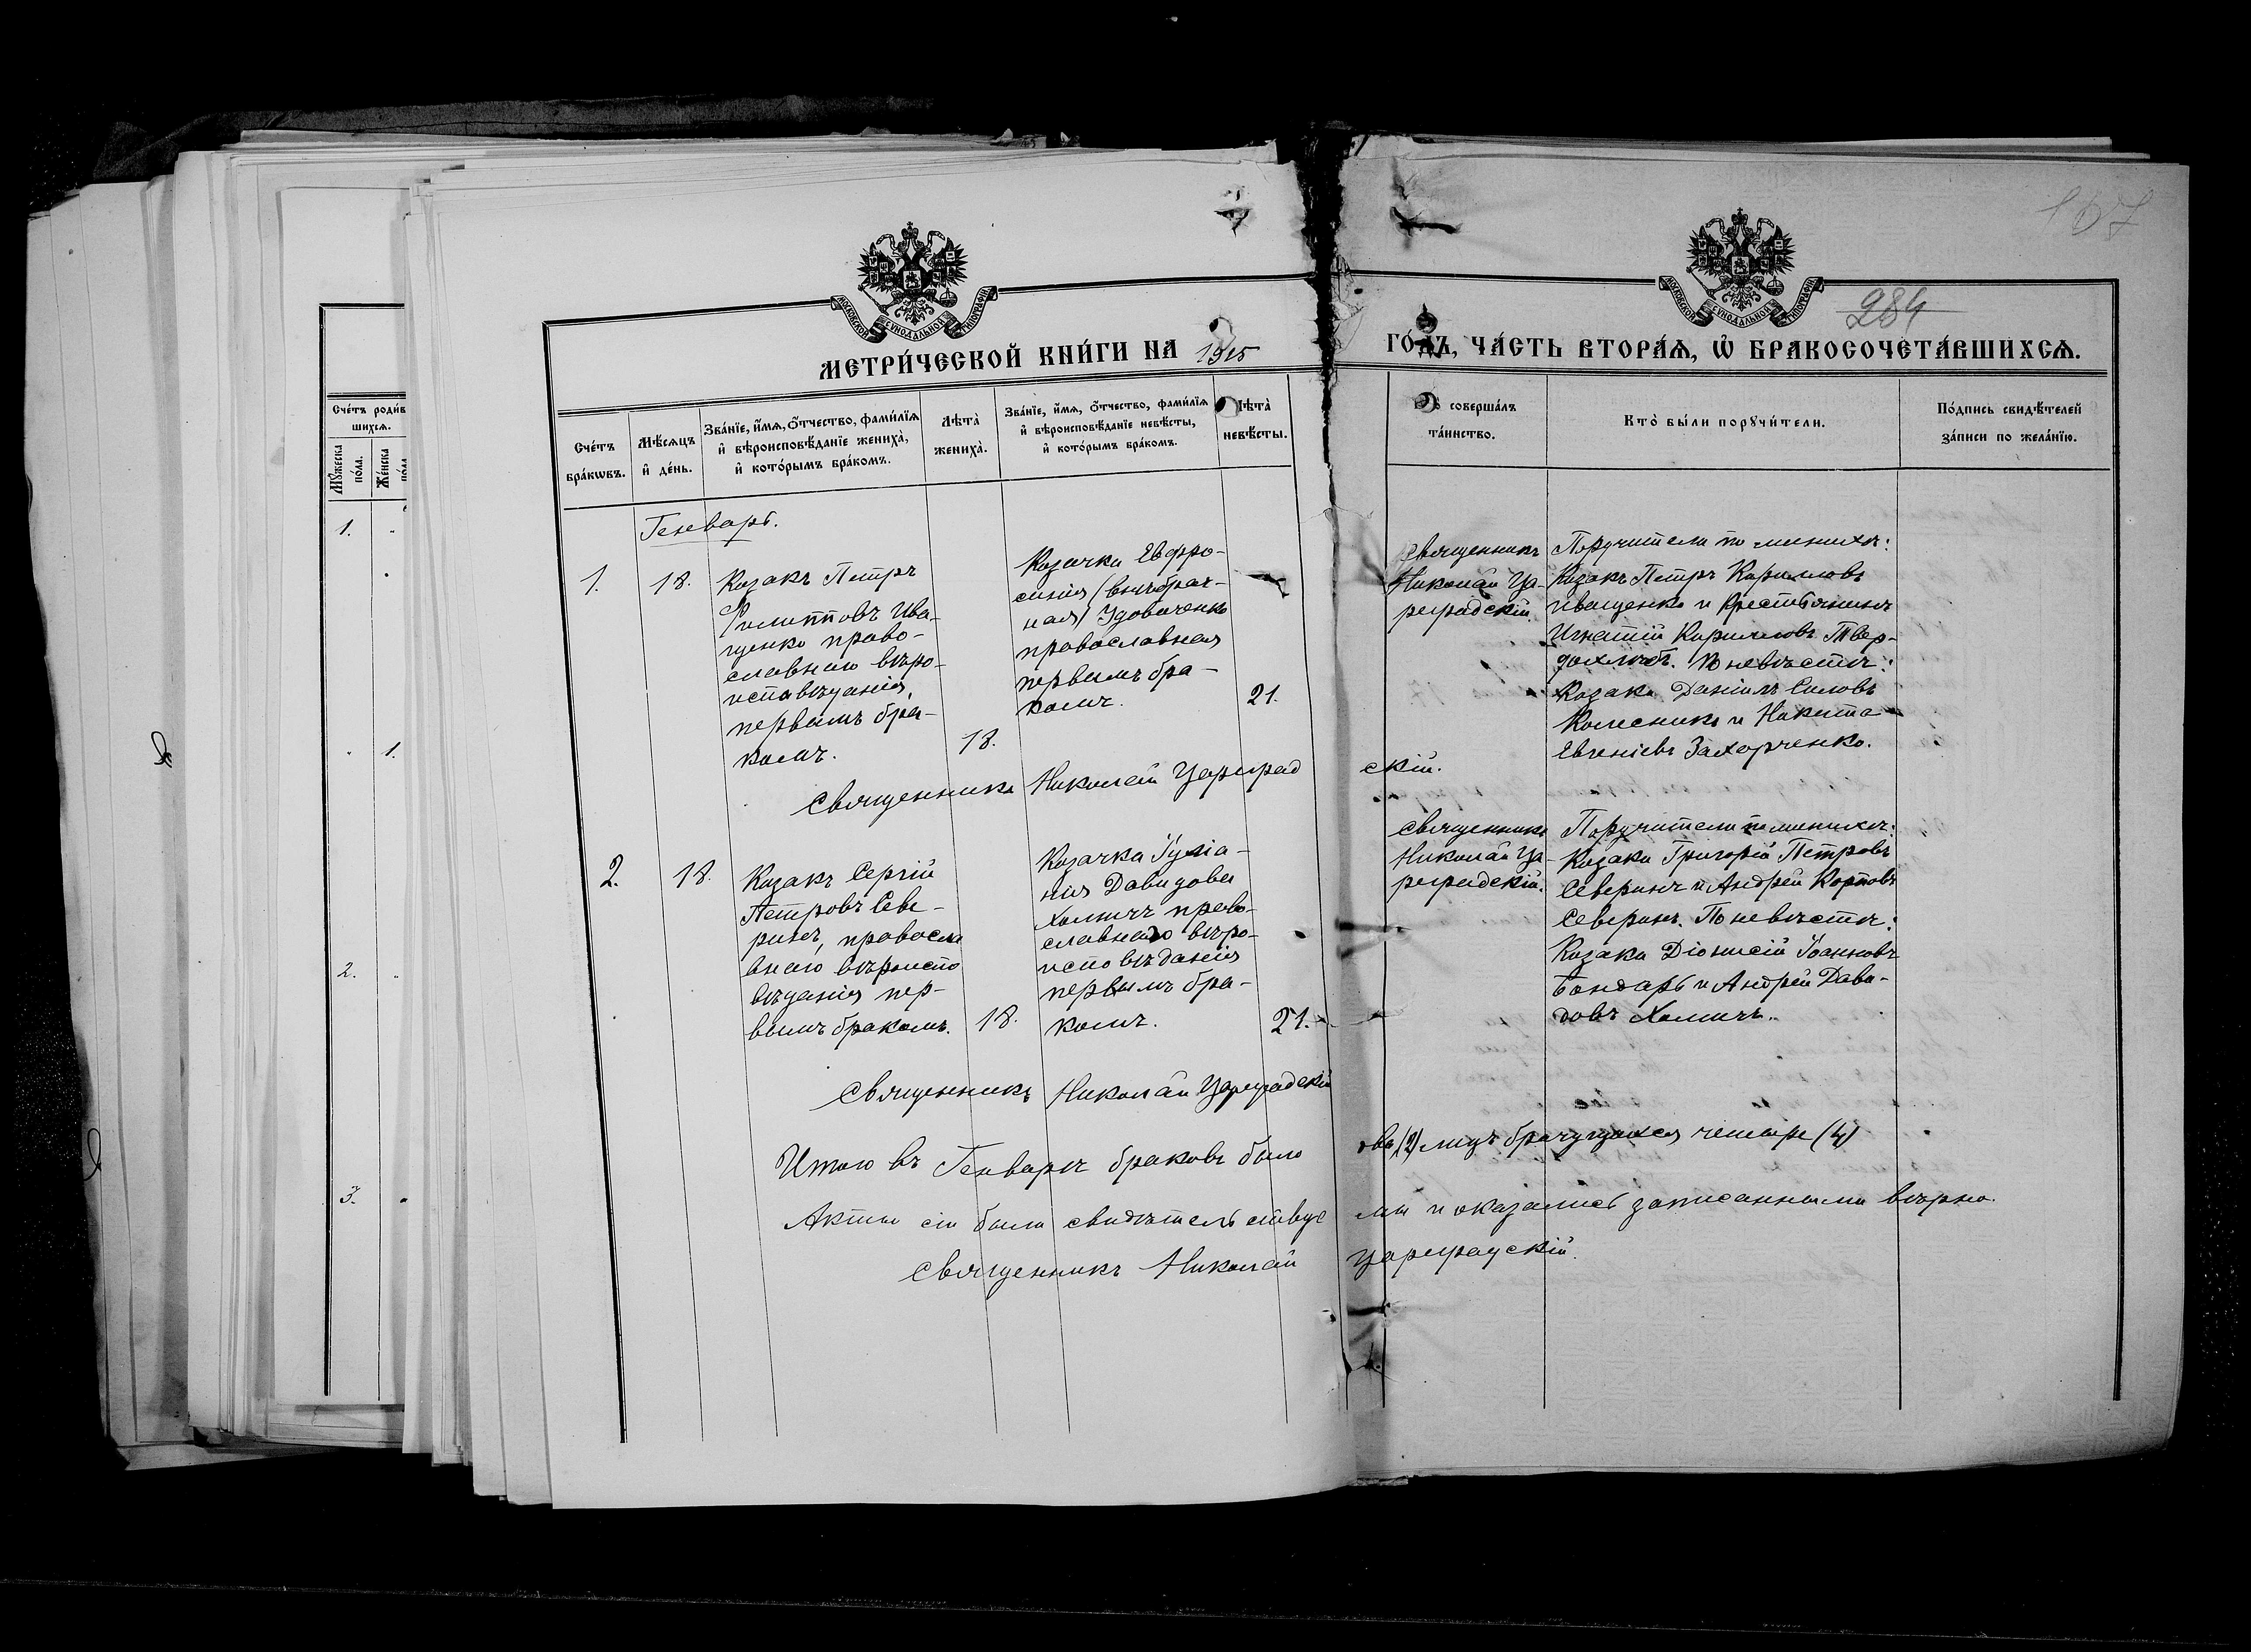 167
284
МОСКОВСКОЙ СУНОДАЛЬНОЙ ТИПОГРАФІИ
МОСКОВСКОЙ СУНОДАЛЬНОЙ ТИПОГРАФІИ
МЕТРИ́ЧЕСКОЙ КНИ́ГИ НА 1915 ГО́ДЪ, ЧА́СТЬ ВТОРА́Ѧ, Ѡ҆ БРАКОСОЧЕТА́ВШИХСѦ.
Сче́тъ роди́в
шихсѧ.
Мꙋ́жеска
по́ла.
Же́нска
по́ла
1.
1.
2.
3.
Сче́тъ
бра́кѡвъ.
Мѣ́сѧцъ
и҆ де́нь.
Зва́нїе, и҆́мѧ, ѻ҆́тчество, фами́лїѧ
и҆ вѣроисповѣ́данїе жениха̀,
и҆ кото́рымъ бра́комъ.
Лѣта̀
жениха̀.
Зва́нїе, и҆́мѧ, ѻ҆́тчество, фами́лїѧ
и҆ вѣроисповѣ́данїе невѣ́сты,
и҆ кото́рымъ бра́комъ.
Лѣта̀
невѣ́сты.
соверша́лъ
та́инство.
Кто̀ бы́ли порꙋчи́тели.
По́дпись свидѣ́телей
за́писи по жела́нїю.
Генварь.
1.
18.
Козакъ Петръ
Филипповъ Ива-
щенко право-
славнаго вѣро-
исповѣданія,
первымъ бра-
комъ.
18.
Козачка Евфро-
синія (внѣбрач-
ная) Удовиченко
православная
первымъ бра-
комъ.
21.
Священникъ
Николай Ца-
реградскій.
Поручители по женихѣ:
Козакъ Петръ Кирилловъ
Иващенко и Крестьянинъ
Игнатій Кирилловъ Твер-
дохлѣбъ. По невѣстѣ:
Козаки Даніилъ Силовъ
Колесникъ и Никита
Евгеніевъ Захарченко.
Священникъ Николай Цареградскій.
2.
18.
Козакъ Сергій
Петровъ Севе-
ринъ, правосла
внаго вѣроиспо
вѣданія пер-
вымъ бракомъ.
18.
Козачка Іуліа-
нія Давидова
Хомичъ право-
славнаго вѣро-
исповѣданія
первымъ бра-
комъ.
21.
Священникъ
Николай Ца-
реградскій.
Поручители по женихѣ:
Козаки Григорій Петровъ
Северинъ и Андрей Карповъ
Северинъ. По невѣстѣ:
Козаки Діонисій Іоанновъ
Бондарь и Андрей Дави-
довъ Хомичъ.
Священникъ Николай Цареградскій
Итого въ Генварѣ браковъ было два (2) лицъ брачущихся четыре (4)
Акты сіи были свидѣтельствуемы и оказались записанными вѣрно.
Священникъ Николай Цареградскій.